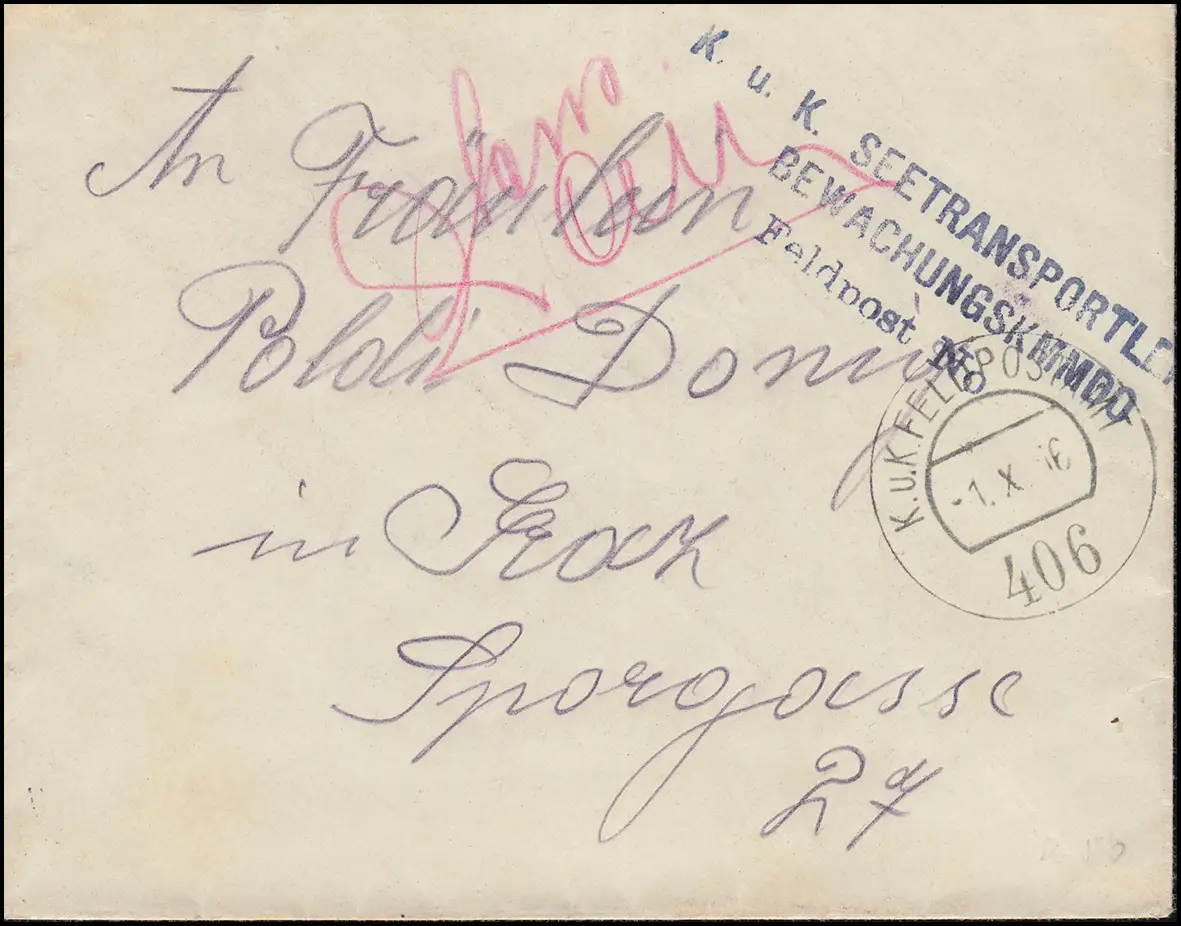 K. u. K. SEETRANSPORTLEI
BEWACHUNGSKMMDO
Feldpost No
K.u.K. FELDPOSTAMT
-1. X 16
406
An Fräulein
Poldi
in Graz
Sporgasse
27